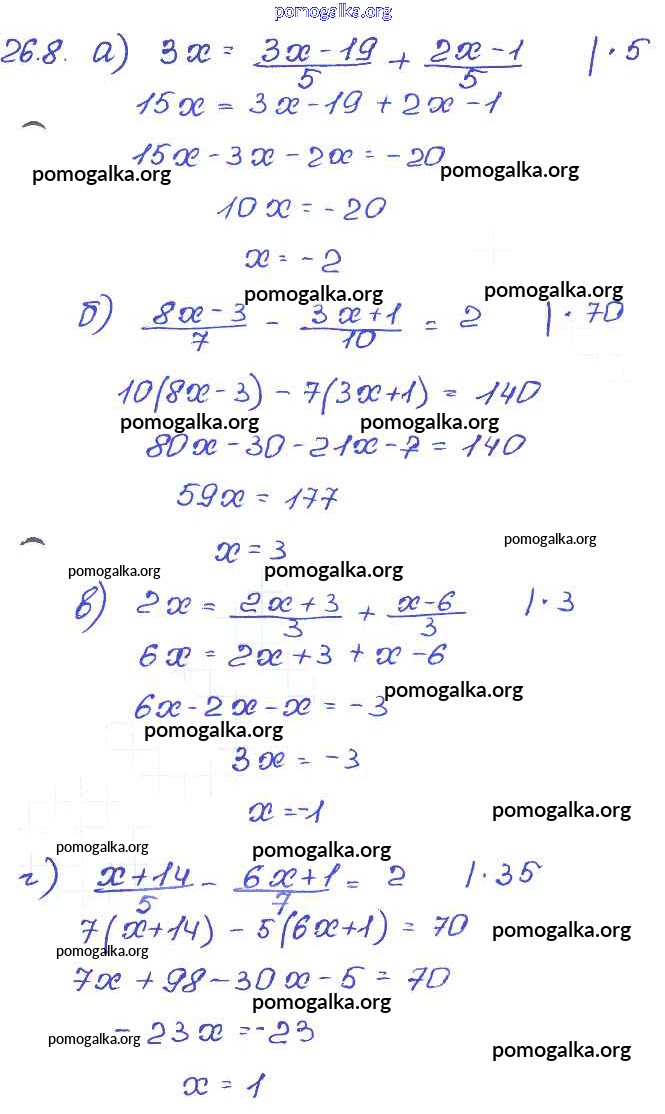 pomogalka.org
26.8. а) 3x = (3x-19)/5 + (2x-1)/5 |·5
15x = 3x-19+2x-1
15x-3x-2x=-20
pomogalka.org pomogalka.org
10x=-20
x=-2
pomogalka.org pomogalka.org
б) (8x-3)/7 - (3x+1)/10 = 2 |·70
10(8x-3)-7(3x+1)=140
pomogalka.org pomogalka.org
80x-30-21x-7=140
59x=177
x=3 pomogalka.org
pomogalka.org pomogalka.org
в) 2x = (2x+3)/3 + (x-6)/3 |·3
6x=2x+3+x-6
pomogalka.org
6x-2x-x=-3
pomogalka.org
3x=-3
x=-1 pomogalka.org
pomogalka.org pomogalka.org
г) (x+14)/5 - (6x+1)/7 = 2 |·35
7(x+14)-5(6x+1)=70 pomogalka.org
pomogalka.org
7x+98-30x-5=70
pomogalka.org
-23x=-23
pomogalka.org pomogalka.org
x=1